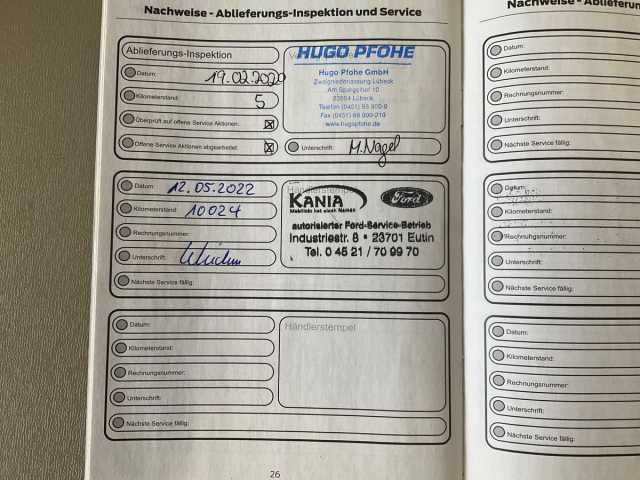 Nachweise - Ablieferungs-Inspektion und Service
Ablieferungs-Inspektion
Datum: 19.02.2020
Kilometerstand: 5
Überprüft auf offene Service Aktionen:
Offene Service Aktionen abgearbeitet:
HUGO PFOHE
Hugo Pfohe GmbH
Zweigniederlassung Lübeck
Am Spargelhof 10
23554 Lübeck
www.hugopfohe.de
Unterschrift: M. Nagel
Datum: 12.05.2022
Kilometerstand: 10024
Rechnungsnummer:
Unterschrift:
Nächste Service fällig:
Händlerstempel
KANIA
Mobilität hat einen Namen
Ford
autorisierter Ford-Service-Betrieb
Industriestr. 8 • 23701 Eutin
Tel. 0 45 21 / 70 99 70
Datum:
Kilometerstand:
Rechnungsnummer:
Unterschrift:
Nächste Service fällig:
Händlerstempel
26
Nachweise - Ablieferun
Datum:
Kilometerstand:
Rechnungsnummer:
Unterschrift:
Nächste Service fällig:
Datum:
Kilometerstand:
Rechnungsnummer:
Unterschrift:
Nächste Service fällig:
Datum:
Kilometerstand:
Rechnungsnummer:
Unterschrift:
Nächste Service fällig: